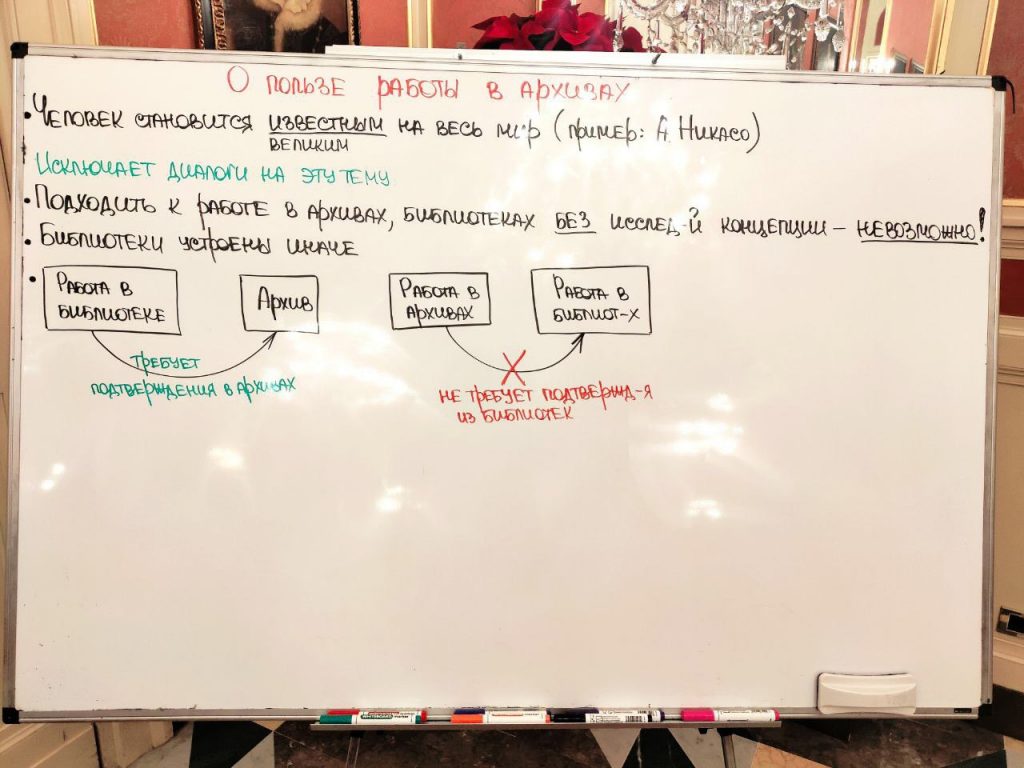 О ПОЛЬЗЕ РАБОТЫ В АРХИВАХ
• ЧЕЛОВЕК СТАНОВИТСЯ ИЗВЕСТНЫМ НА ВЕСЬ МИР (ПРИМЕР: А. НИКАСО)
ВЕЛИКИМ
ИСКЛЮЧАЕТ ДИАЛОГИ НА ЭТУ ТЕМУ
• ПОДХОДИТЬ К РАБОТЕ В АРХИВАХ, БИБЛИОТЕКАХ БЕЗ ИССЛЕД-Й КОНЦЕПЦИИ – НЕВОЗМОЖНО!
• БИБЛИОТЕКИ УСТРОЕНЫ ИНАЧЕ
• РАБОТА В
БИБЛИОТЕКЕ
АРХИВ
ТРЕБУЕТ
ПОДТВЕРЖДЕНИЯ В АРХИВАХ
РАБОТА В
АРХИВАХ
РАБОТА В
БИБЛИОТ-Х
НЕ ТРЕБУЕТ ПОДТВЕРЖД-Я
ИЗ БИБЛИОТЕК